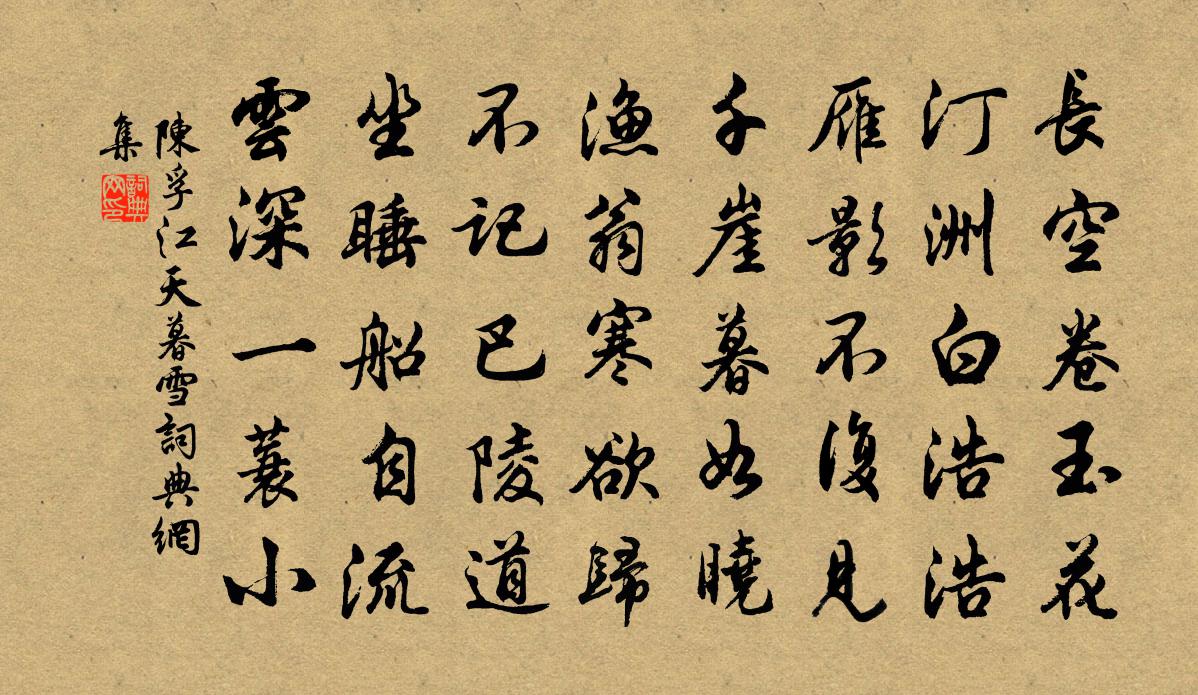 長空卷玉花
汀洲白浩浩
雁影不復見
千崖暮如曉
漁翁寒欲歸
不記巴陵道
坐睡船自流
雲深一蓑小
陳孚江天暮雪詞典網
集
詞典
网印